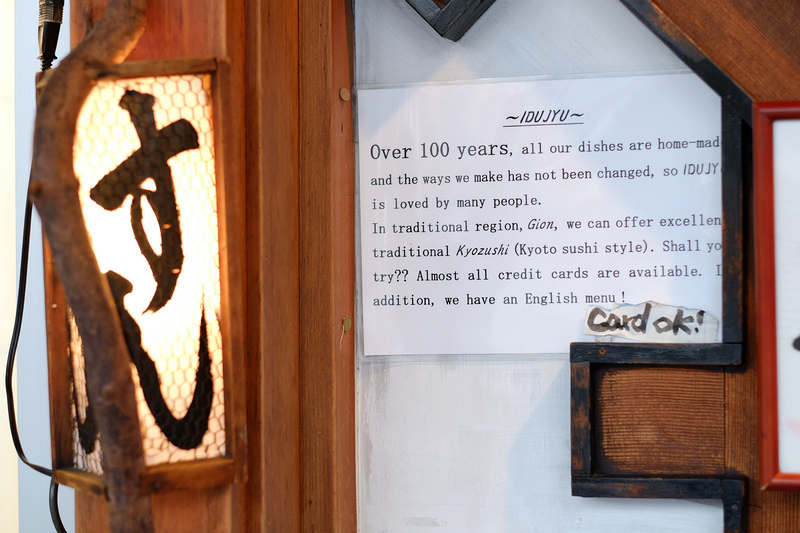 すし
~IDUJYU~
Over 100 years, all our dishes are home-mad
and the ways we make has not been changed, so IDUJY
is loved by many people.
In traditional region, Gion, we can offer excellen
traditional Kyozushi (Kyoto sushi style). Shall yo
try?? Almost all credit cards are available. I
addition, we have an English menu!
Card ok!